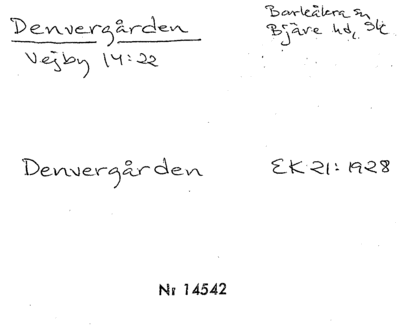 Denvergården
Barkåkra sn
Vejby 14:22
Bjäre hd,
Denvergården EK 21: 1928
Nr 14542